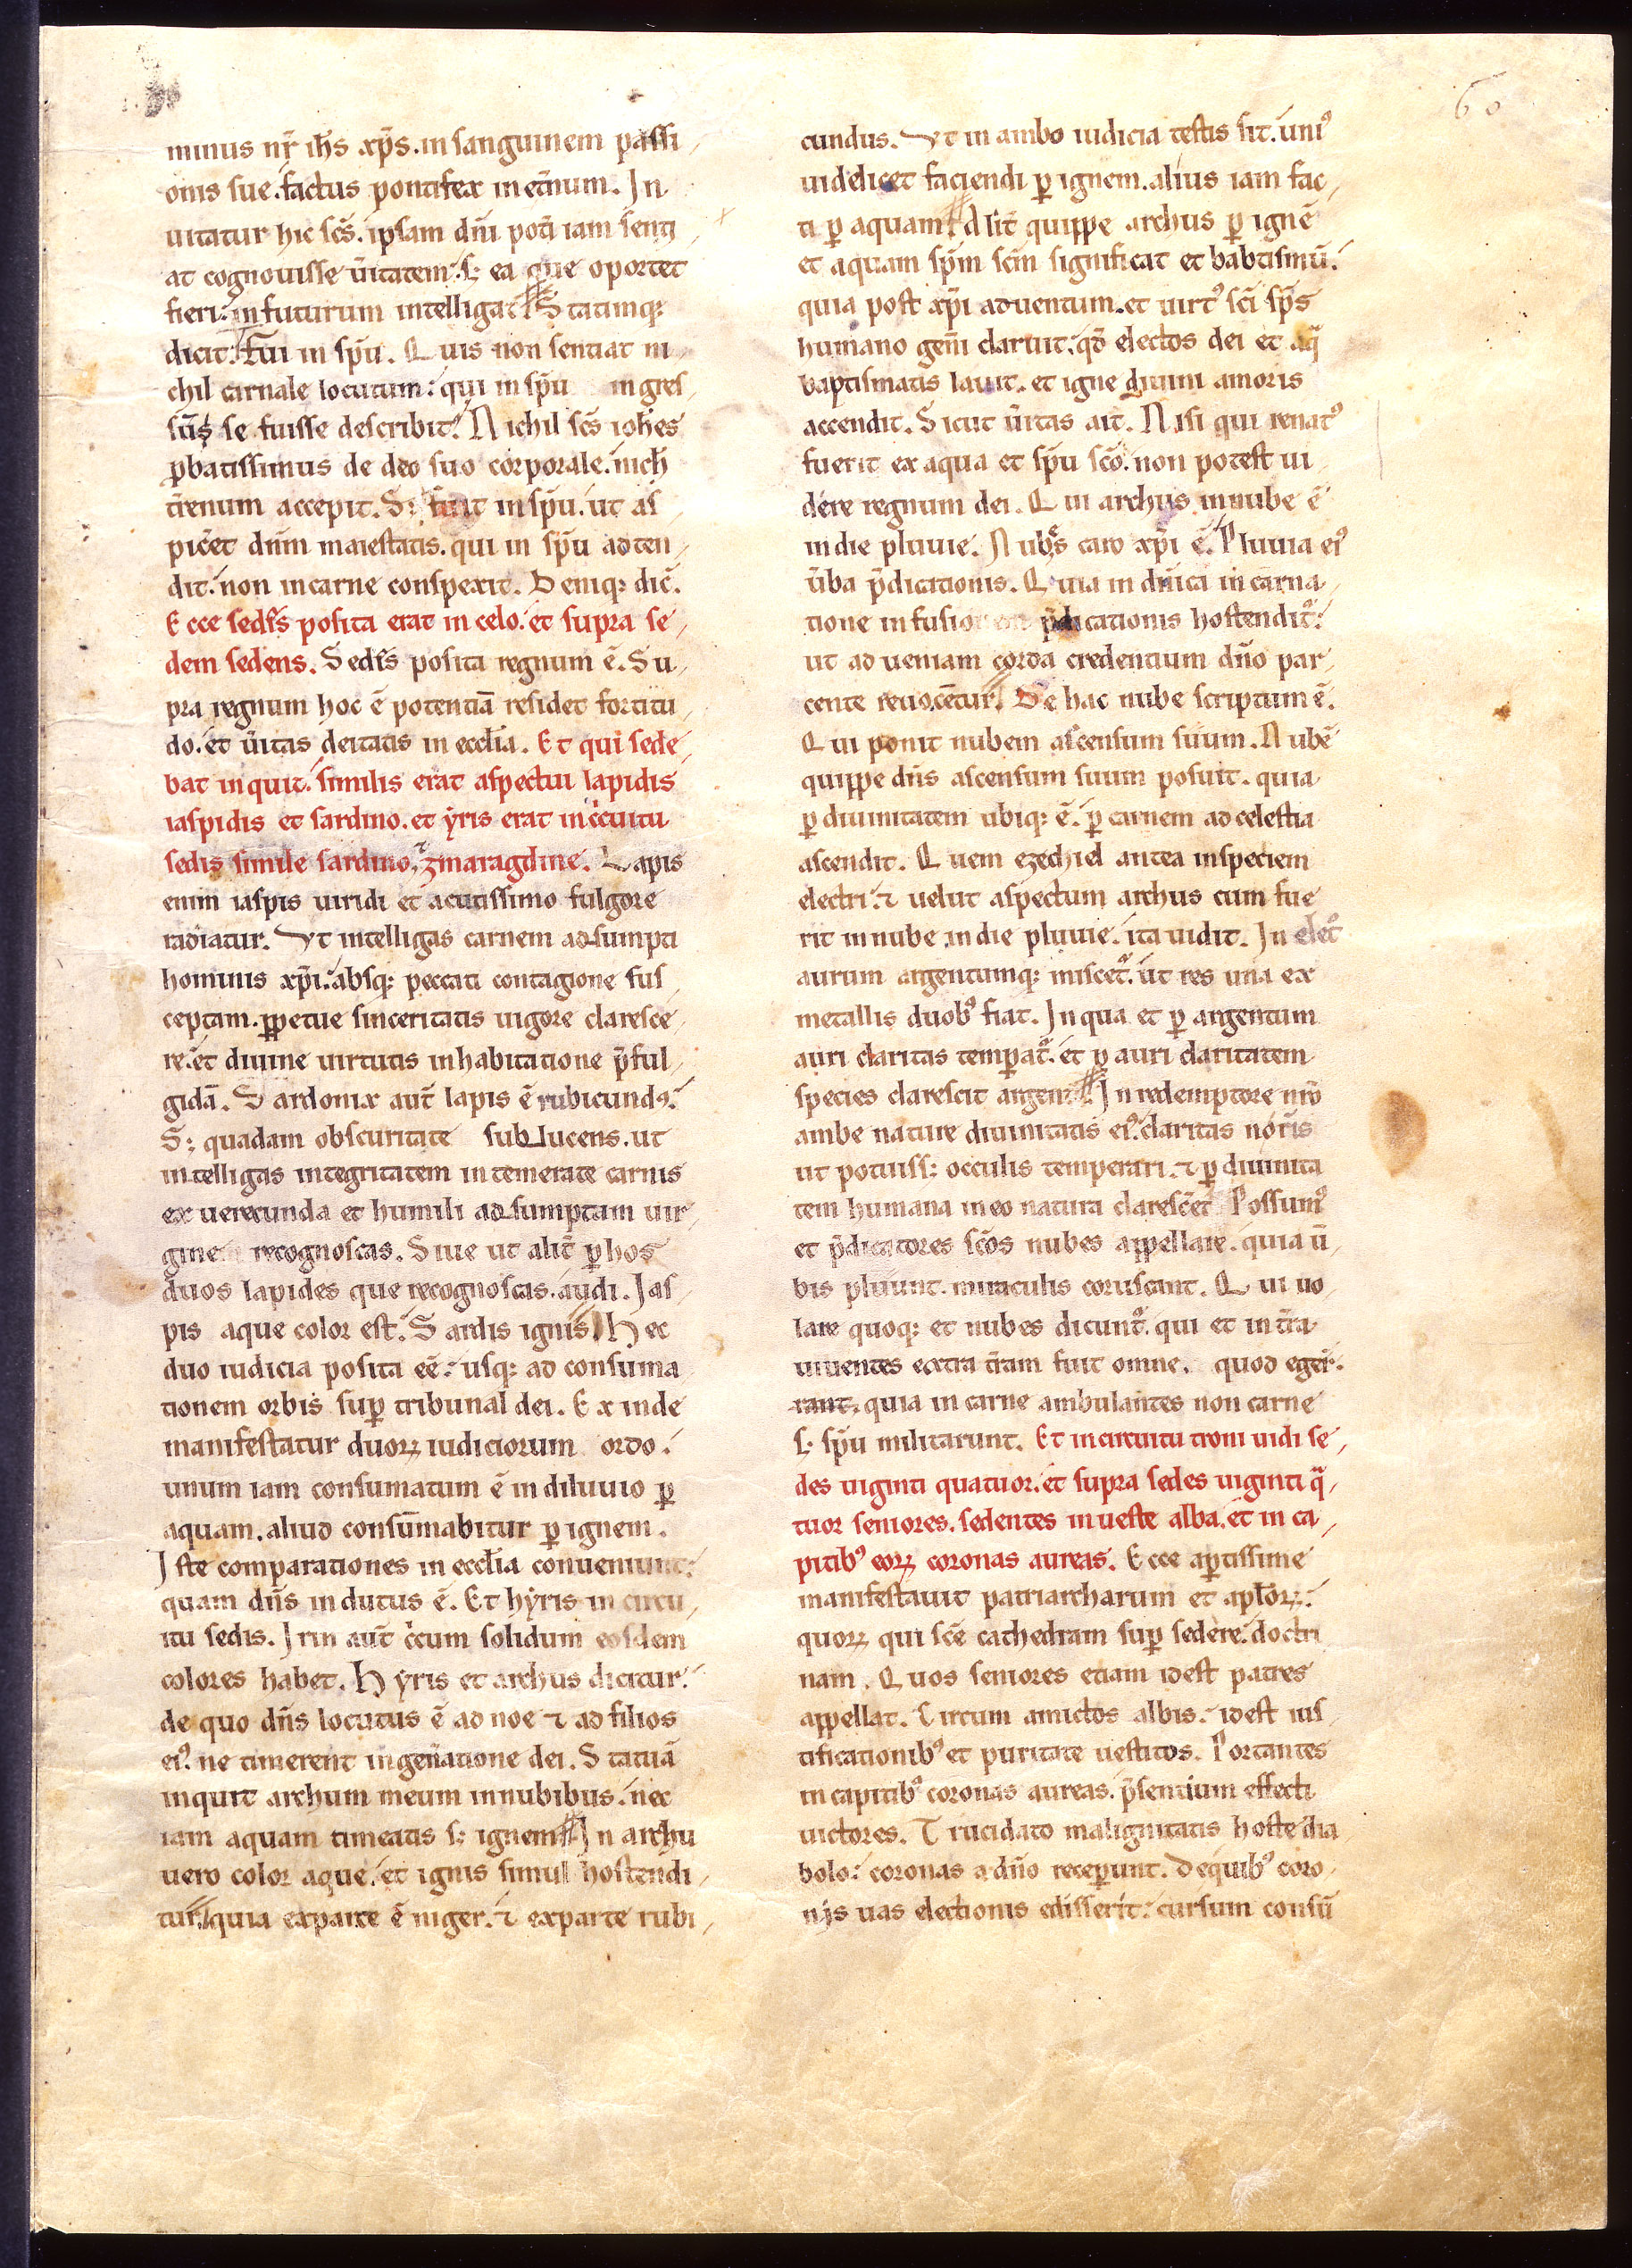 60
minus nr̄ ih̄s xp̄s. in sanguinem passi
onis sue. factus pontifex in et̄num. In
uitatur hic sc̄s. ipsam dn̄i pot̄ iam senti
at cognouisse ūitatem. s; ea que oportet
fieri: in futurum intelligat. Statimq;
dicit. Fui in sp̄u. Quis non sentiat ni
chil carnale locutum: qui in sp̄u ingres
sūs se fuisse describit. Nichil sc̄s ioh̄es
ꝓbatissimus de deo suo corporale. nich̄
t̄renum accepit. Si fuit in sp̄u. ut as
pic̄et dn̄m maiestatis. qui in sp̄u adten
dit. non in carne conspexit. Deniq; dic̄.
Ecce sedis posita erat in celo. et supra se
dem sedens. Sedis posita regnum ē. Su
pra regnum hoc ē potentiā residet fortitu
do. et ūitas deitatis in eccl̄ia. Et qui sede
bat inquit. similis erat aspectui lapidis
iaspidis et sardino. et yris erat in c̄cuitu
sedis simile sardino, ⁊ zmaragdine. Lapis
enim iaspis uiridi et acutissimo fulgore
radiatur. Ut intelligas carnem adsumpti
hominis xp̄i. absq; peccati contagione sus
ceptam. ꝑpetue sinceritatis uigore claresce
re. et diuine uirtutis inhabitatione p̄ful
gidā. Sardonix aut̄ lapis ē rubicundꝰ.
S; quadam obscuritate sublucens. ut
intelligas integritatem intemerate carnis
ex uerecunda et humili adsumptam uir
gine recognoscas. Siue ut alit̄ ꝑ hos
duos lapides que recognoscas. audi. Ias
pis aque color est. Sardis ignis. Hec
duo iudicia posita eē. usq; ad consuma
tionem orbis suꝑ tribunal dei. Ex inde
manifestatur duoꝝ iudiciorum ordo.
unum iam consumatum ē in diluuio ꝑ
aquam. aliud consūmabitur ꝑ ignem.
Iste comparationes in eccl̄ia conueniunt:
quam dn̄s indutus ē. Et hyris in circu
itu sedis. Irin aut̄ c̄cum solidum eosdem
colores habet. Hyris et archus dicitur.
de quo dn̄s locutus ē ad noe ⁊ ad filios
eiꝰ. ne timerent in gen̄atione dei. Statuā
inquit archum meum in nubibus. nec
iam aquam timeatis s; ignem. In archu
uero color aque. et ignis simul hostendi
tur. quia ex parte ē niger. ⁊ ex parte rubi
cundus. Ut in ambo iudicia testis sit. uniꝰ
uidelicet faciendi ꝑ ignem. alius iam fac
ti ꝑ aquam. Alit̄ quippe archus ꝑ ignē
et aquam sp̄m sc̄m significat et babtismū.
quia post xp̄i aduentum. et uirtꝰ sc̄i sp̄s
humano gen̄i claruit. qd̄ electos dei et aq̄
baptismatis lauit. et igne diuini amoris
accendit. Sicut ūitas ait. Nisi qui renatꝰ
fuerit ex aqua et sp̄u sc̄o. non potest ui
dere regnum dei. Qui archus in nube ē
in die pluuie. Nubs caro xp̄i ē. Pluuia eiꝰ
ūba p̄dicationis. Quia in dn̄ica incarna
tione infusio p̄dicationis hostendit̄.
ut ad ueniam corda credentium dn̄o par
cente reuocēt̄ur. De hac nube scriptum ē.
Qui ponit nubem ascensum suum. Nubē
quippe dn̄s ascensum suum posuit. quia
ꝑ diuinitatem ubiq; ē. ꝑ carnem ad celestia
ascendit. Quem ezechiel antea in speciem
electri. ⁊ uelut aspectum archus cum fue
rit in nube in die pluuie. ita uidit. In elect°
aurum argentumq; miscet̄. ut res una ex
metallis duobꝰ fiat. In qua et ꝑ argentum
auri claritas temꝑat̄. et ꝑ auri claritatem
species clarescit argenti. In redemptore nr̄o
ambe nature diuinitatis eiꝰ. claritas nor̄is
ut potuiss; occulis temperari. ⁊ ꝑ diuinita
tem humana in eo natura claresc̄et. Possumꝰ
et p̄dicatores sc̄os nubes appellare. quia ū
bis pluunt. miraculis coruscant. Qui uo
lare quoq; et nubes dicunt̄. qui et in t̄ra
uiuentes extra t̄ram fuit omne. quod eger.
rant. quia in carne ambulantes non carne
s; sp̄u militarunt. Et in circuitu troni uidi se
des uiginti quatuor. et supra sedes uiginti q̄
tuor seniores. sedentes in ueste alba. et in ca
pitibꝰ eoꝝ coronas aureas. Ecce aꝑtissime
manifestauit patriarcharum et apl̄oꝝ.
quoꝝ qui sc̄e cathedram suꝑ sedere. doctri
nam. Quos seniores etiam idest patres
appellat. Circum amictos albis. idest ius
tificationibꝰ et puritate uestitos. Portantes
in capitibꝰ coronas aureas. p̄sentium effecti
uictores. Trucidato malignitatis hoste dia
bolo: coronas a dn̄o receꝑunt. De quibꝰ coro
nis uas electionis edisserit: cursum consū